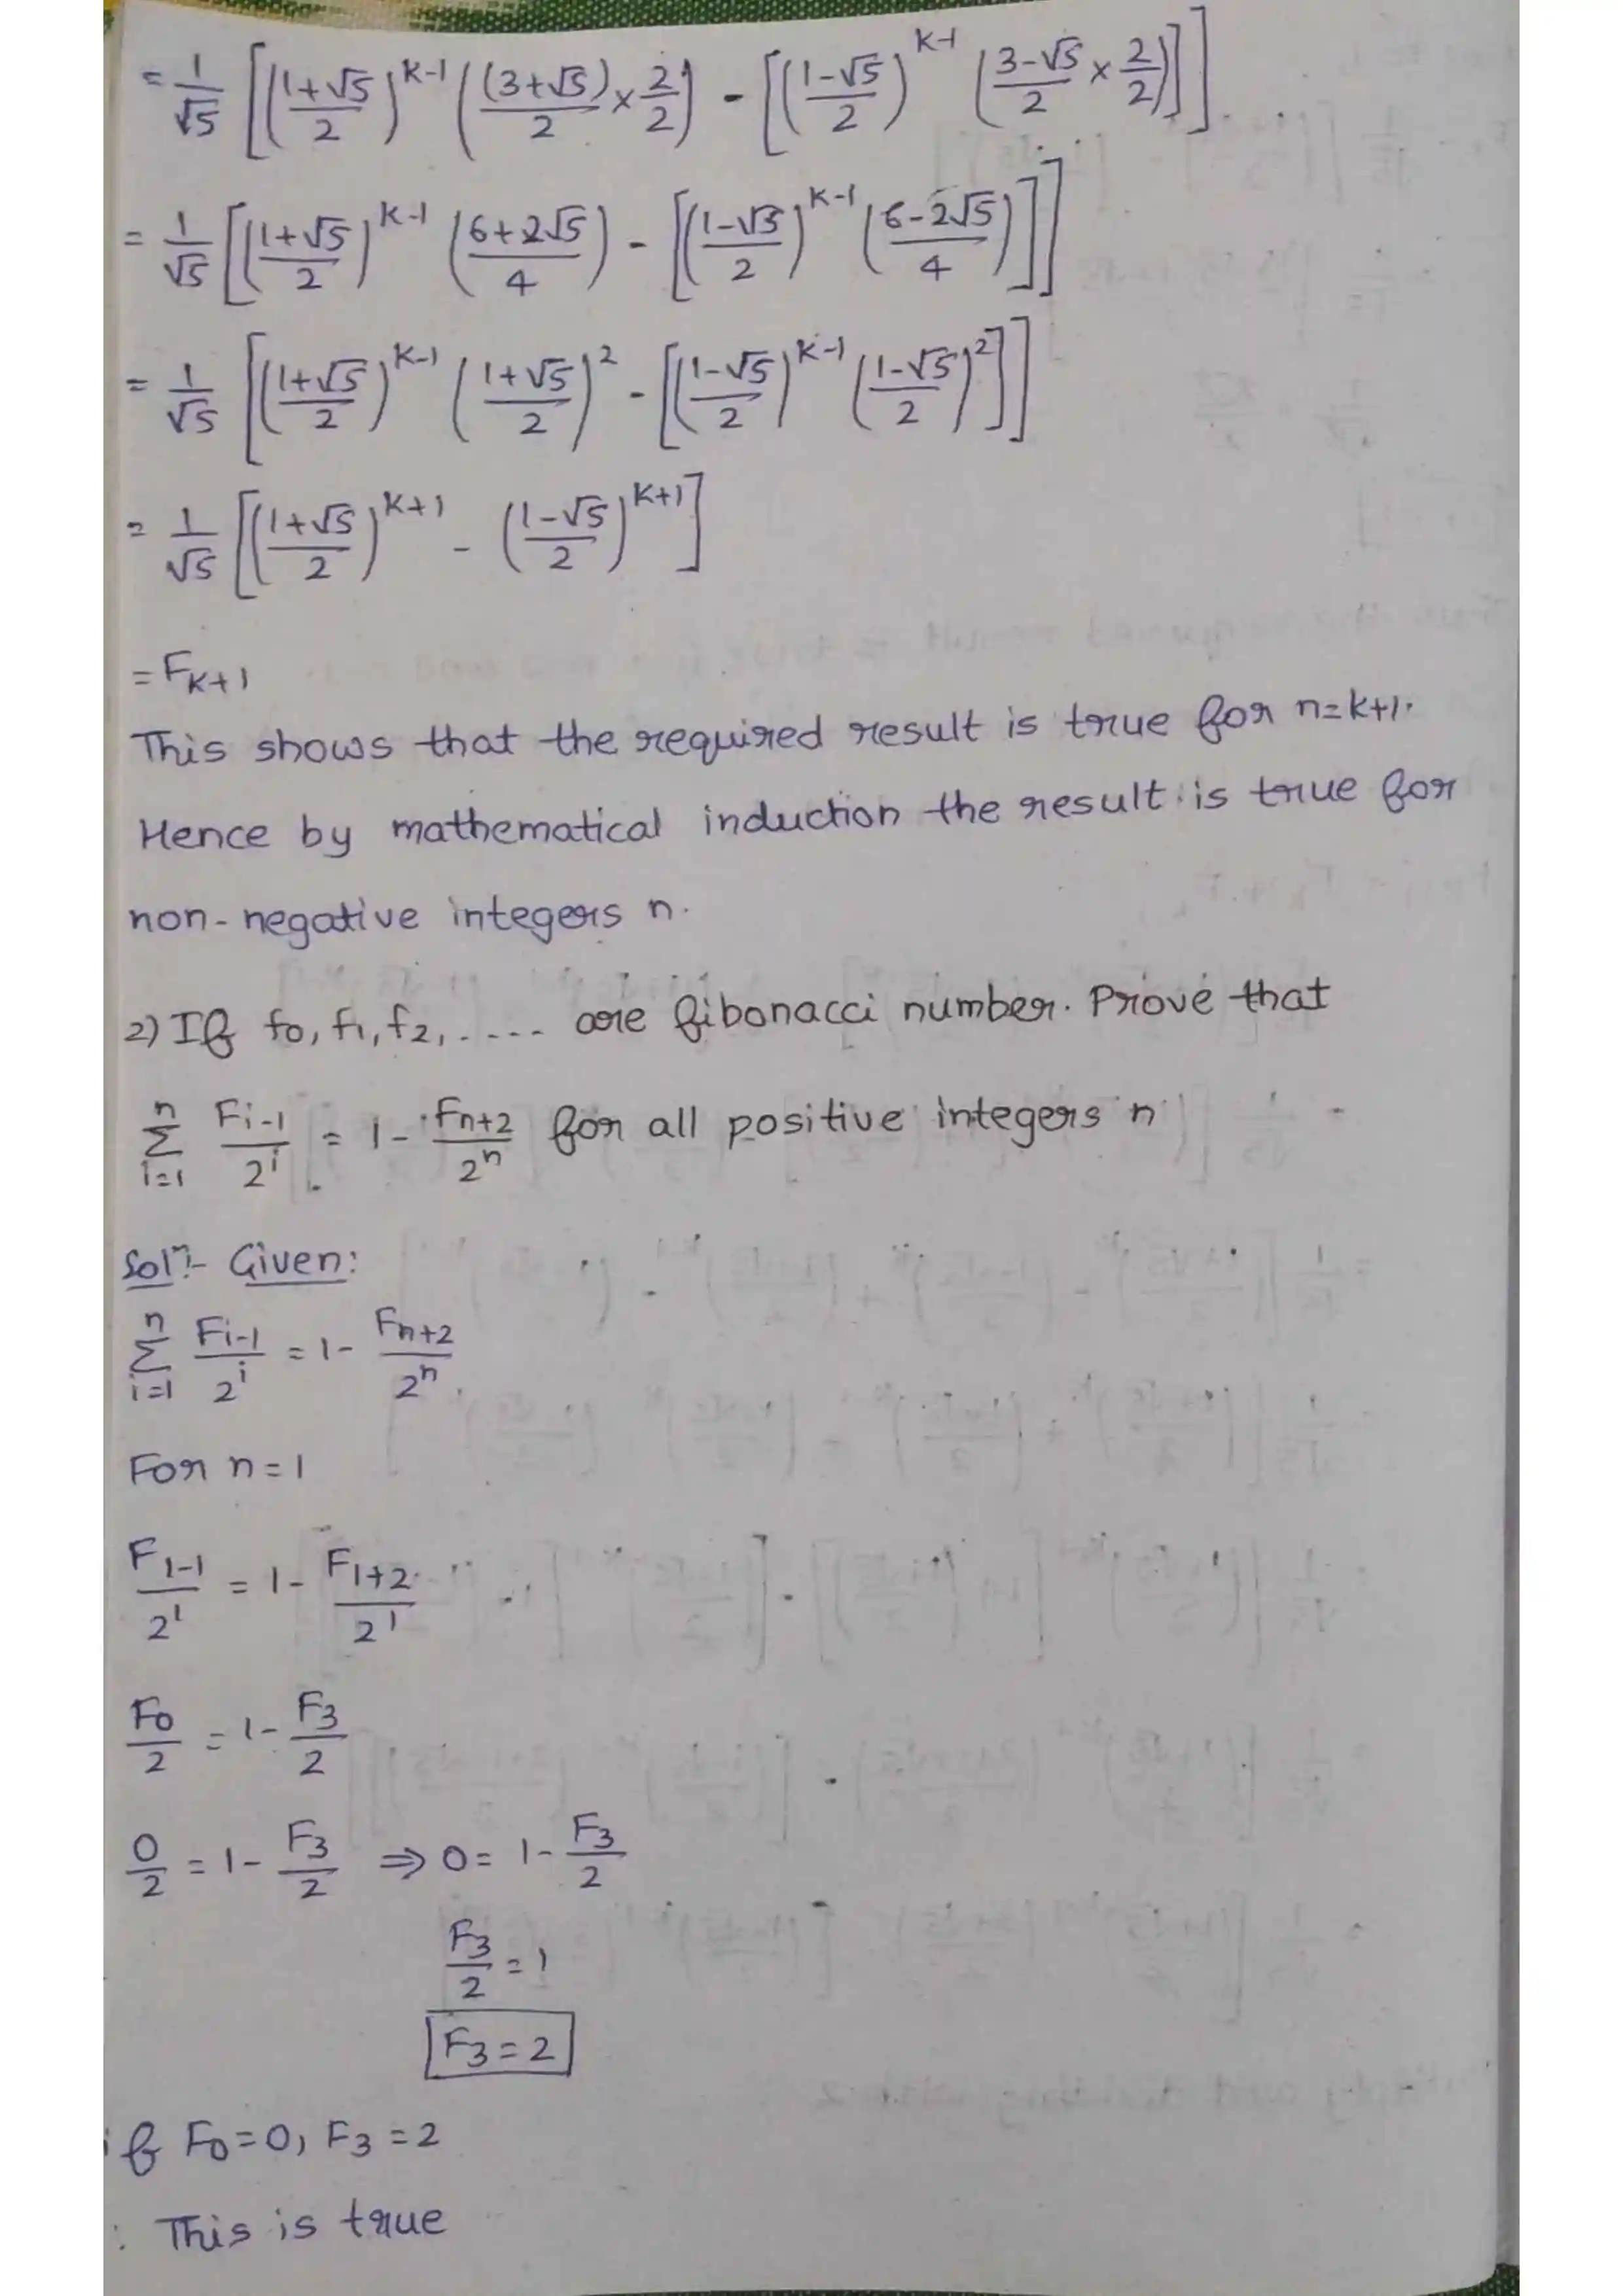 = 1/√5 [((1+√5)/2)^(k-1) ((3+√5)/2 × 2/2) - [((1-√5)/2)^(k-1) ((3-√5)/2 × 2/2)]]
= 1/√5 [((1+√5)/2)^(k-1) ((6+2√5)/4) - [((1-√5)/2)^(k-1) ((6-2√5)/4)]]
= 1/√5 [((1+√5)/2)^(k-1) ((1+√5)/2)^2 - [((1-√5)/2)^(k-1) ((1-√5)/2)^2]]
= 1/√5 [((1+√5)/2)^(k+1) - ((1-√5)/2)^(k+1)]
= F_(k+1)
This shows that the required result is true for n=k+1.
Hence by mathematical induction the result is true for
non-negative integers n.
2) If f0, f1, f2, ..... are fibonacci number. Prove that
Σ_(i=1)^n F_(i-1)/2^i = 1 - F_(n+2)/2^n for all positive integers n
Solⁿ:- Given:
Σ_(i=1)^n F_(i-1)/2^i = 1 - F_(n+2)/2^n
For n=1
F_(1-1)/2^1 = 1 - F_(1+2)/2^1
F0/2 = 1 - F3/2
0/2 = 1 - F3/2 ⇒ 0 = 1 - F3/2
F3/2 = 1
F3 = 2
if F0 = 0, F3 = 2
∴ This is true